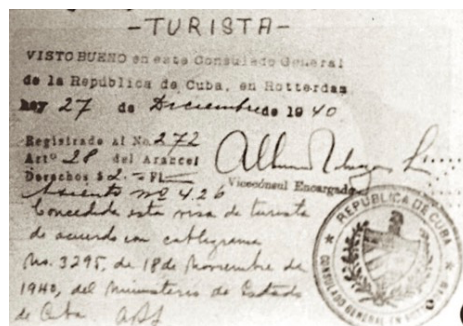 -TURISTA-
VISTO BUENO en este Consulado General
de la República de Cuba, en Rotterdam
hoy 27 de Diciembre de 1940.
Registrado al No. 272
Artº 28 del Arancel
Derechos $ 2.- Fl
Viceconsul Encargado
Asiento nº 426
Concedida esta visa de turista
de acuerdo con cablegrama
No. 3295, de 18 de Noviembre de
1940, del Ministerio de Estado
de Cuba
REPUBLICA DE CUBA
CONSULADO GENERAL EN